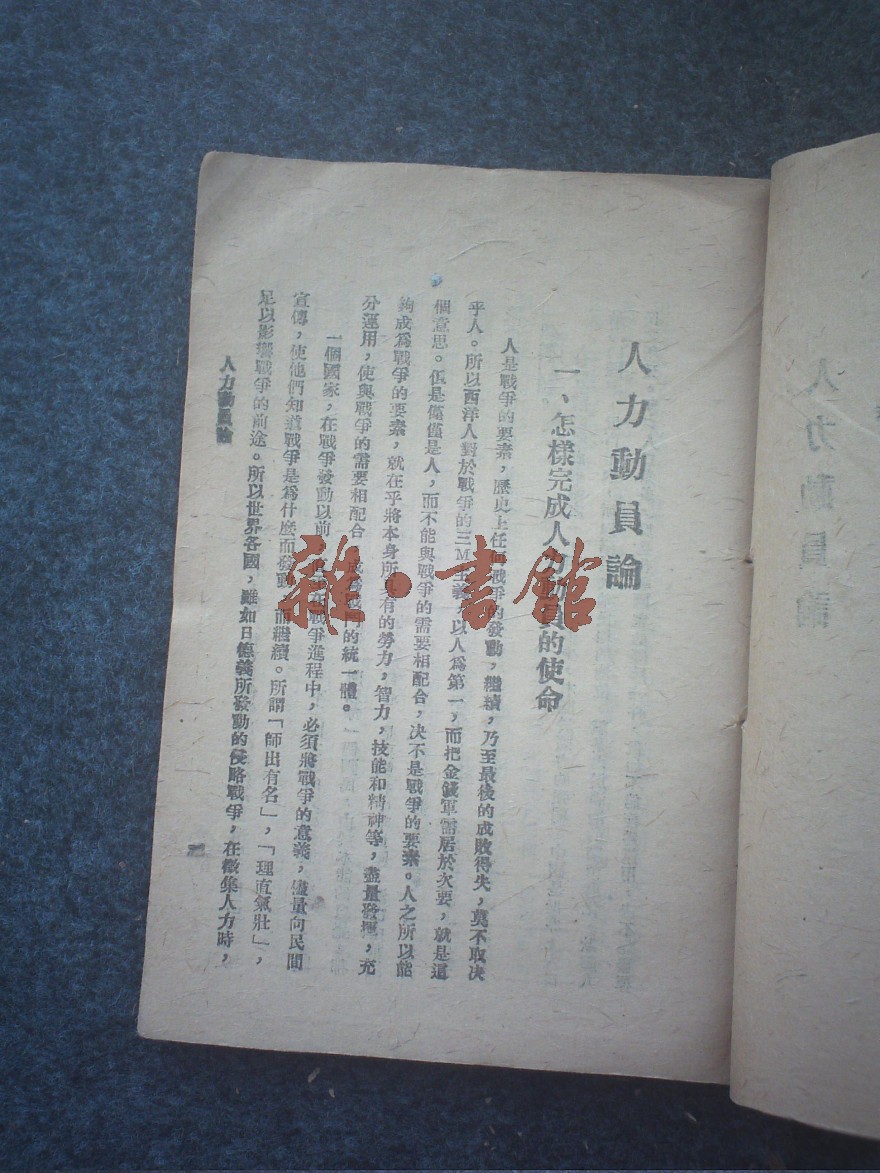 人力動員論
一、怎樣完成人力動員的使命
人是戰爭的要素，歷史上任何戰爭的發動，繼續，乃至最後的成敗得失，莫不取決
乎人。所以西洋人對於戰爭的三M主義，以人爲第一，而把金錢軍需居於次要，就是這
個意思。但是僅僅是人，而不能與戰爭的需要相配合，决不是戰爭的要素。人之所以能
夠成爲戰爭的要素，就在乎將本身所具有的勞力，智力，技能和精神等，盡量發揮，充
分運用，使與戰爭的需要相配合，成爲戰鬥的統一體。
一個國家，在戰爭發動以前，在戰爭進程中，必須將戰爭的意義，儘量向民間
宣傳，使他們知道戰爭是爲什麽而發動，而繼續。所謂「師出有名」，「理直氣壯」，
足以影響戰爭的前途。所以世界各國，雖如日德義所發動的侵略戰爭，在徵集人力時，
人力動員論
雜·書館
人力動員論